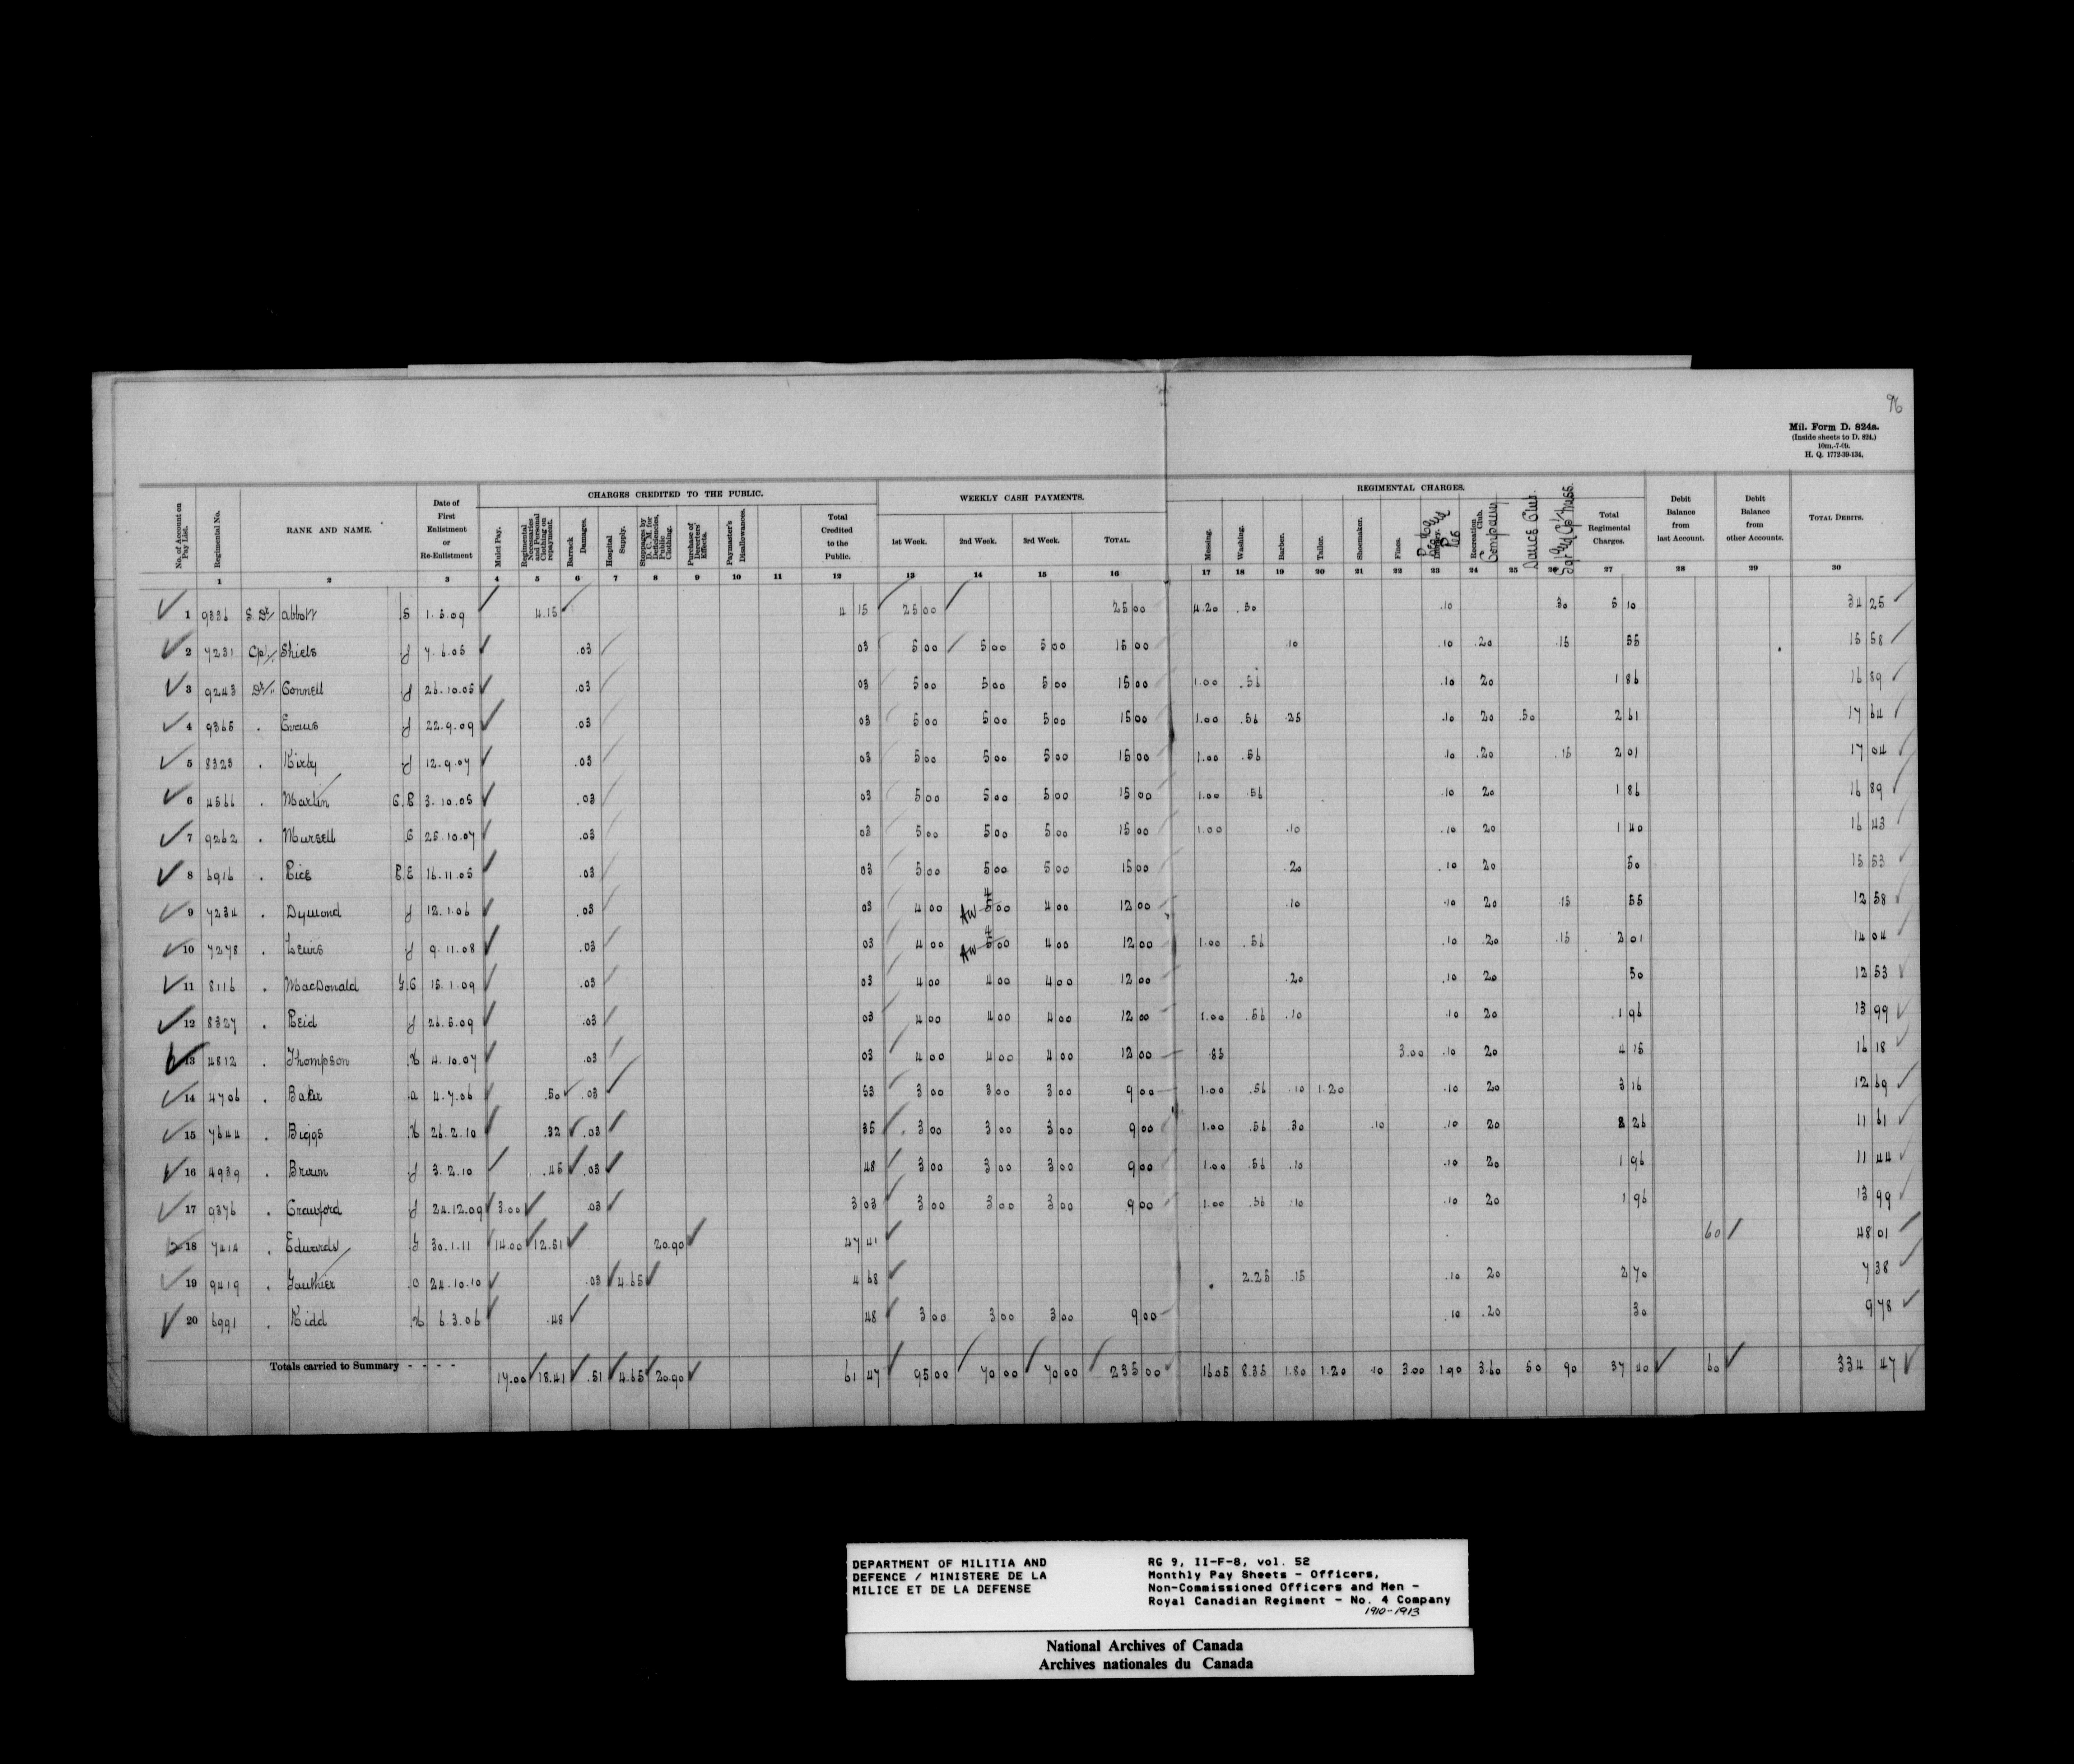 96
Mil. Form D. 824a.
(Inside sheets to D. 824.)
10m.-7-09.
H. Q. 1772-39-134.
No. of Account on Pay List. Regimental No. RANK AND NAME. Date of First Enlistment or Re-Enlistment CHARGES CREDITED TO THE PUBLIC. WEEKLY CASH PAYMENTS. REGIMENTAL CHARGES. Debit Balance from last Account. Debit Balance from other Accounts. TOTAL DEBITS.
Mulct Pay. Regimental Necessaries and Personal Clothing on repayment. Barrack Damages. Hospital Supply. Stoppages by D.C.M. for Deficiencies, Public Clothing. Purchase of Deserters' Effects. Paymaster's Disallowances. Total Credited to the Public. 1st Week. 2nd Week. 3rd Week. TOTAL. Messing. Washing. Barber. Tailor. Shoemaker. Fines. Library. Recreation Club. Company Dance Club. Sgts & Cpls Mess. Total Regimental Charges.
1 2 3 4 5 6 7 8 9 10 11 12 13 14 15 16 17 18 19 20 21 22 23 24 25 26 27 28 29 30
1 9336 S. Dr Abbott S 1.5.09 4.15 4 15 25 00 25 00 4.20 .50 .10 30 5 10 34 25
2 7231 Cpl Shiels J 7.6.05 .03 03 5 00 5 00 5 00 15 00 .10 .10 .20 .15 55 15 58
3 9243 Connell J 26.10.05 .03 03 5 00 5 00 5 00 15 00 1.00 .56 .10 20 1 86 16 89
4 9365 . Evans J 22.9.09 .03 03 5 00 5 00 5 00 15 00 1.00 .56 .25 .10 20 .50 2 61 17 64
5 8323 . Kirby J 12.9.07 .03 03 5 00 5 00 5 00 15 00 1.00 .56 .10 .20 .15 2 01 17 04
6 4566 . Martin C.R 3.10.05 .03 03 5 00 5 00 5 00 15 00 1.00 .56 .10 20 1 86 16 89
7 9262 . Mursell C 25.10.07 .03 03 5 00 5 00 5 00 15 00 1.00 .10 .10 20 1 40 16 43
8 6916 . Rice R.E 16.11.05 .03 03 5 00 5 00 5 00 15 00 .20 .10 20 50 15 53
9 7234 . Dymond J 12.1.06 .03 03 4 00 AW 4 5 00 4 00 12 00 .10 .10 20 .15 55 12 58
10 7278 . Lewis J 9.11.08 .03 03 4 00 AW 4 5 00 4 00 12 00 1.00 .56 .10 .20 .15 2 01 14 04
11 8116 . MacDonald G.C 15.1.09 .03 03 4 00 4 00 4 00 12 00 .20 .10 20 50 12 53
12 8327 . Reid J 26.5.09 .03 03 4 00 4 00 4 00 12 00 1.00 .56 .10 .10 20 1 96 13 99
13 4812 . Thompson H 4.10.07 .03 03 4 00 4 00 4 00 12 00 .85 3.00 .10 20 4 15 16 18
14 4706 . Baker A 4.7.06 .50 .03 53 3 00 3 00 3 00 9 00 1.00 .56 .10 1.20 .10 20 3 16 12 69
15 7644 . Biggs H 26.2.10 .32 .03 35 3 00 3 00 3 00 9 00 1.00 .56 .30 .10 .10 20 2 26 11 61
16 4989 . Brown J 3.2.10 .45 .03 48 3 00 3 00 3 00 9 00 1.00 .56 .10 .10 20 1 96 11 44
17 9376 . Crawford J 24.12.09 3.00 .03 3 03 3 00 3 00 3 00 9 00 1.00 .56 .10 .10 20 1 96 13 99
18 7414 . Edwards J 30.1.11 14.00 12.51 20.90 47 41 60 48 01
19 9419 . Gauthier O 24.10.10 .03 4.65 4 68 2.25 .15 .10 20 2 70 7 38
20 6991 . Kidd H 6.3.06 .48 48 3 00 3 00 3 00 9 00 .10 .20 30 9 78
Totals carried to Summary - - - - 17.00 18.41 .51 4.65 20.90 61 47 95 00 70 00 70 00 235 00 16.05 8.35 1.80 1.20 .10 3.00 1.90 3.60 50 90 37 40 60 334 47
DEPARTMENT OF MILITIA AND
DEFENCE / MINISTERE DE LA
MILICE ET DE LA DEFENSE
RG 9, II-F-8, vol. 52
Monthly Pay Sheets - Officers,
Non-Commissioned Officers and Men -
Royal Canadian Regiment - No. 4 Company
1910-1913
National Archives of Canada
Archives nationales du Canada